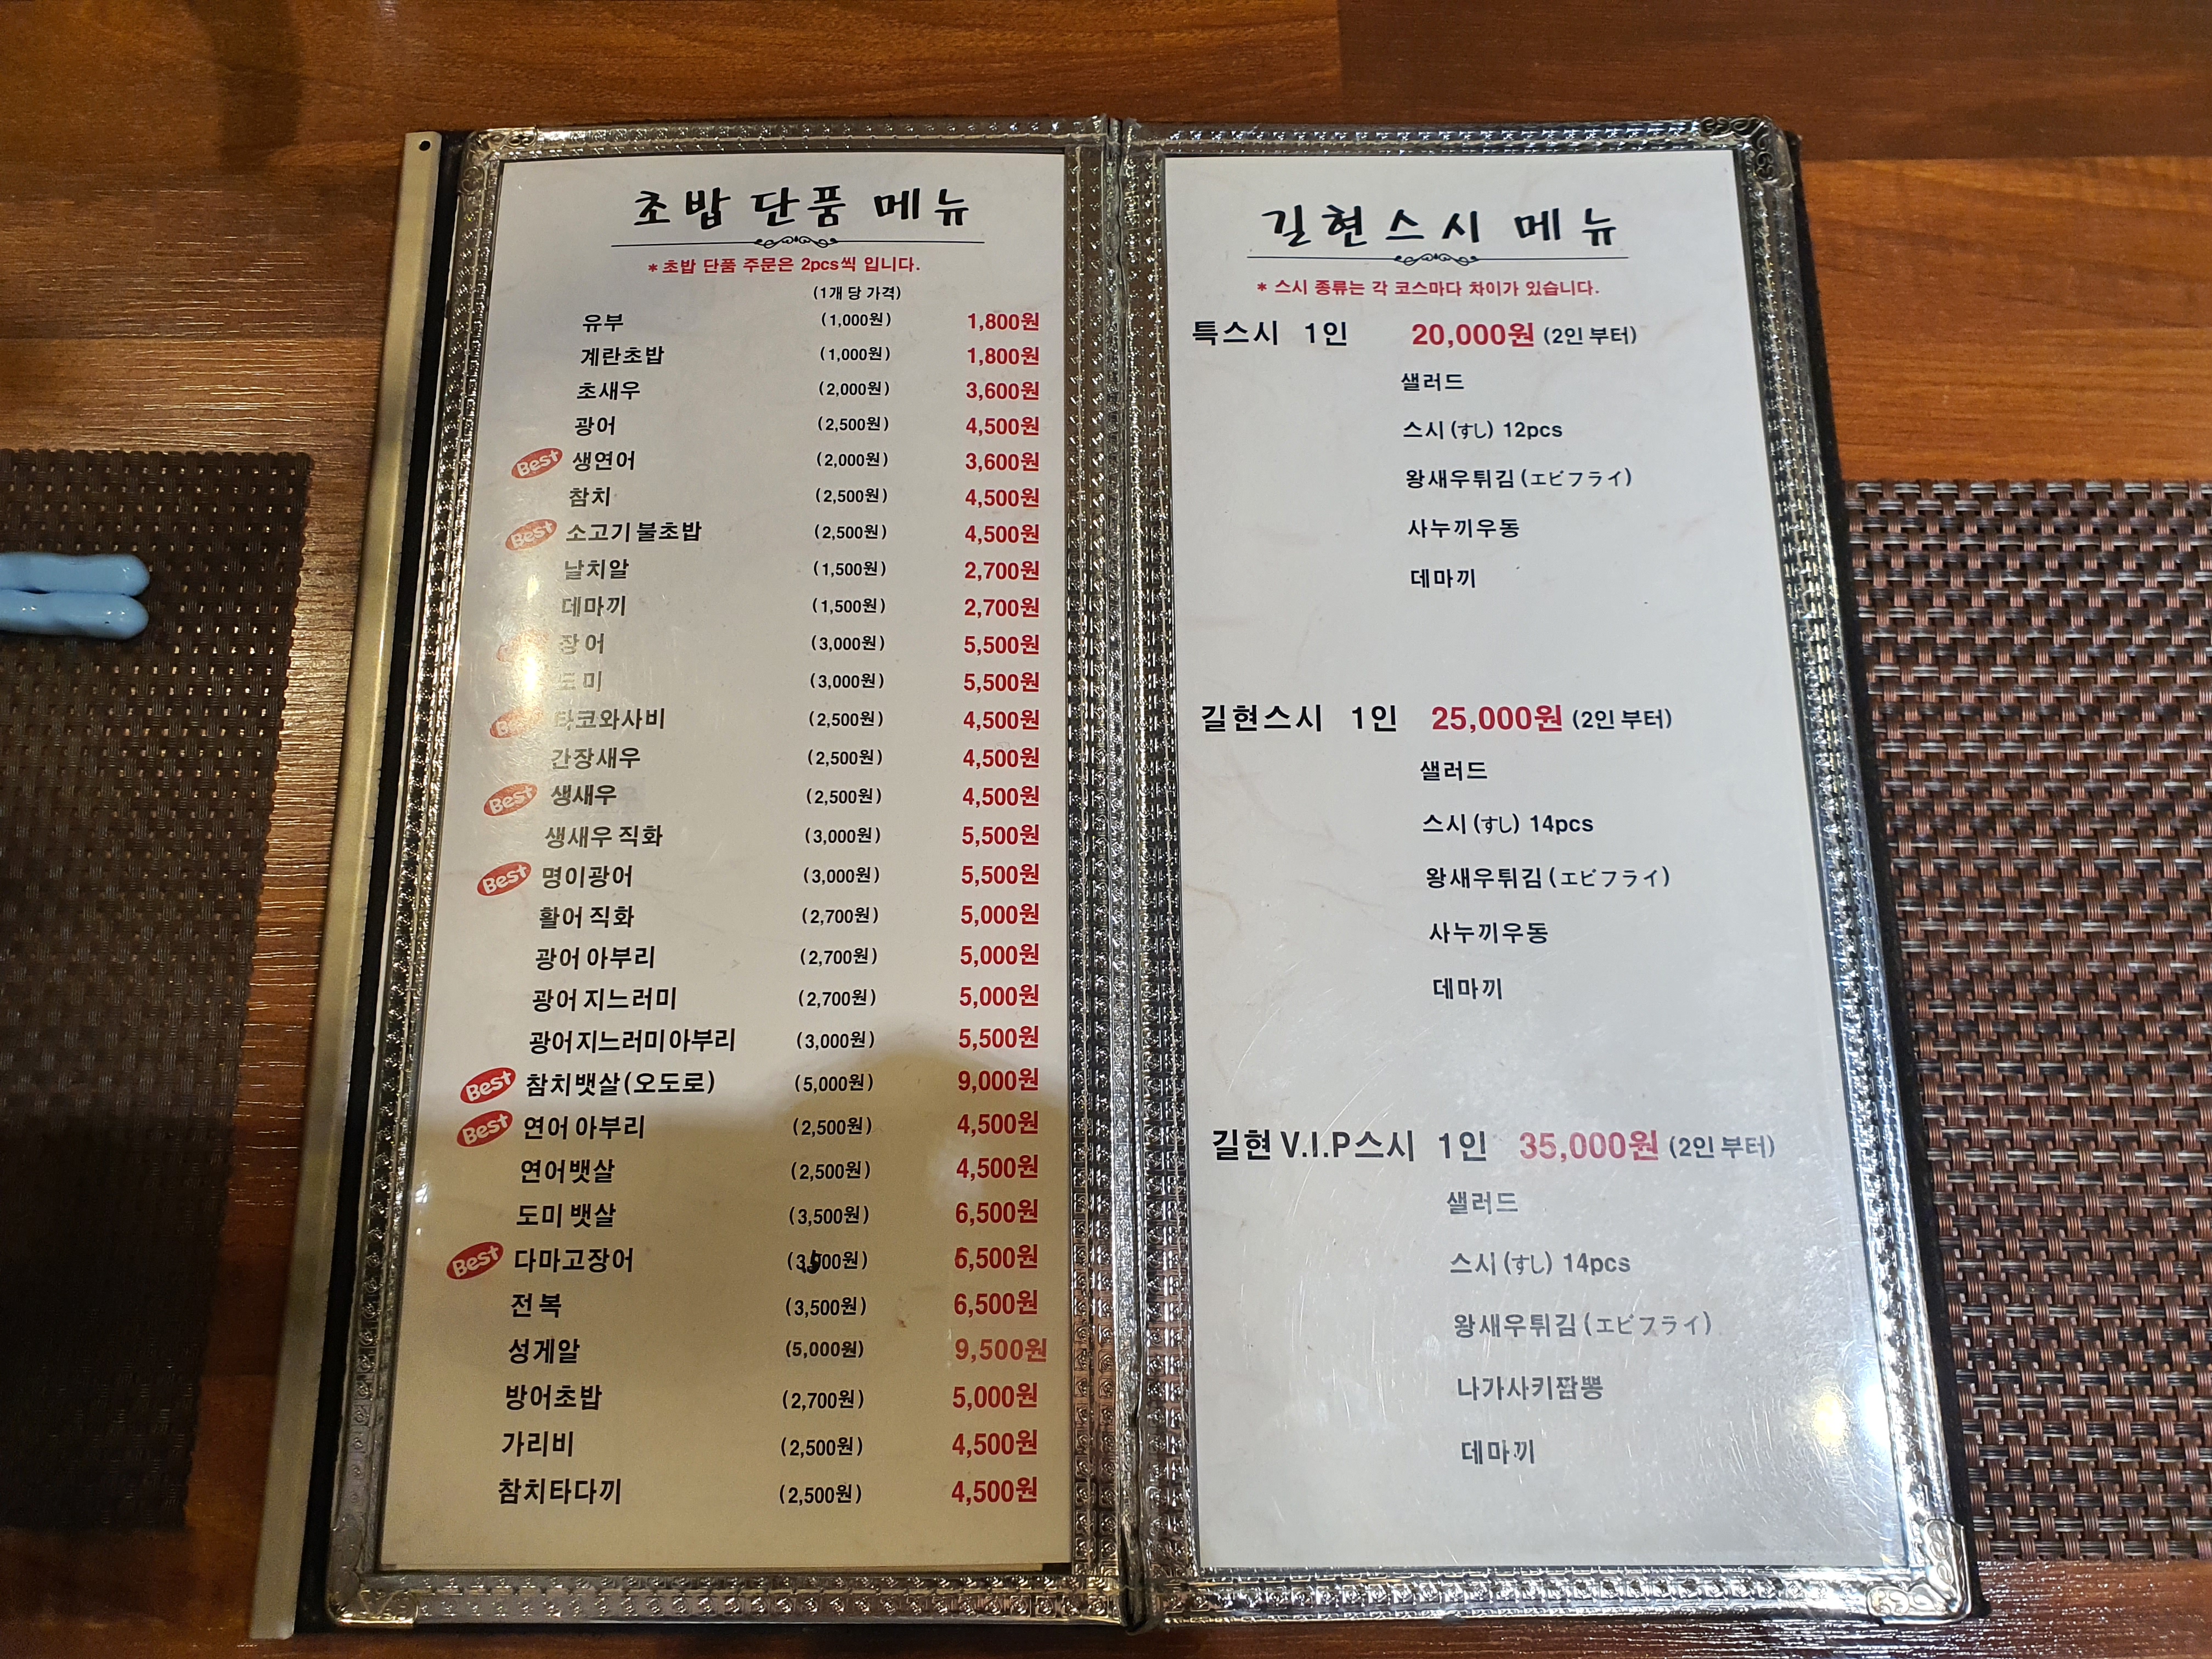 초밥 단품 메뉴
*초밥 단품 주문은 2pcs씩 입니다.
(1개 당 가격)
유부 (1,000원) 1,800원
계란초밥 (1,000원) 1,800원
초새우 (2,000원) 3,600원
광어 (2,500원) 4,500원
Best 생연어 (2,000원) 3,600원
참치 (2,500원) 4,500원
Best 소고기불초밥 (2,500원) 4,500원
날치알 (1,500원) 2,700원
데마끼 (1,500원) 2,700원
장어 (3,000원) 5,500원
도미 (3,000원) 5,500원
Best 타코와사비 (2,500원) 4,500원
간장새우 (2,500원) 4,500원
Best 생새우 (2,500원) 4,500원
생새우 직화 (3,000원) 5,500원
Best 명이광어 (3,000원) 5,500원
활어 직화 (2,700원) 5,000원
광어 아부리 (2,700원) 5,000원
광어 지느러미 (2,700원) 5,000원
광어지느러미아부리 (3,000원) 5,500원
Best 참치뱃살(오도로) (5,000원) 9,000원
Best 연어 아부리 (2,500원) 4,500원
연어뱃살 (2,500원) 4,500원
도미 뱃살 (3,500원) 6,500원
Best 다마고장어 (3,500원) 6,500원
전복 (3,500원) 6,500원
성게알 (5,000원) 9,500원
방어초밥 (2,700원) 5,000원
가리비 (2,500원) 4,500원
참치타다끼 (2,500원) 4,500원
길현스시 메뉴
* 스시 종류는 각 코스마다 차이가 있습니다.
특스시 1인 20,000원 (2인 부터)
샐러드
스시(すし) 12pcs
왕새우튀김(エビフライ)
사누끼우동
데마끼
길현스시 1인 25,000원 (2인 부터)
샐러드
스시(すし) 14pcs
왕새우튀김(エビフライ)
사누끼우동
데마끼
길현 V.I.P스시 1인 35,000원 (2인 부터)
샐러드
스시(すし) 14pcs
왕새우튀김(エビフライ)
나가사키짬뽕
데마끼